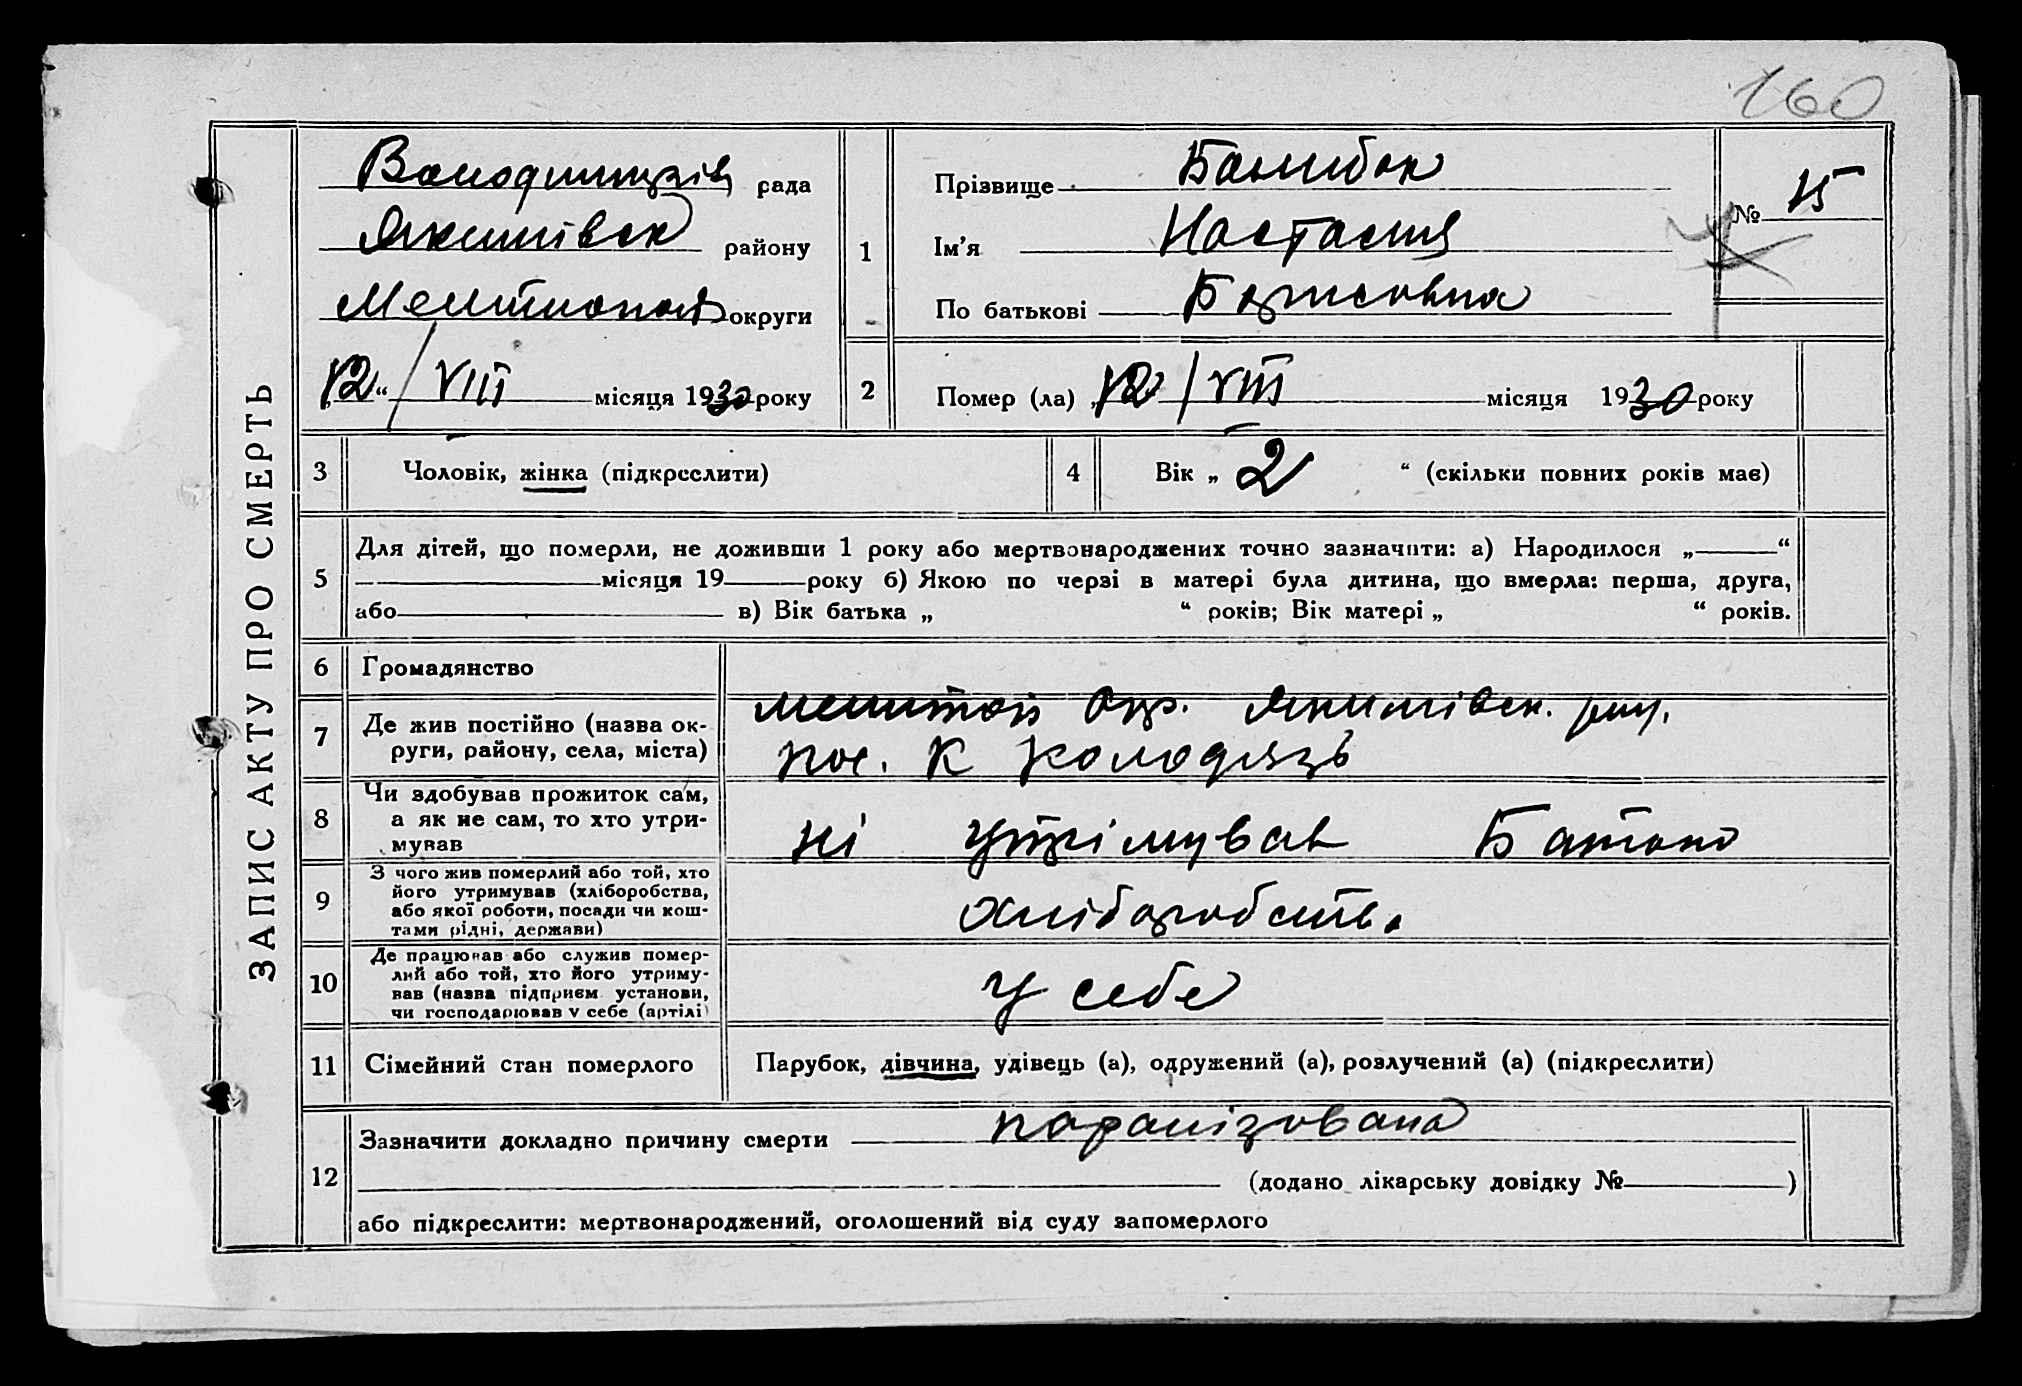 160
ЗАПИС АКТУ ПРО СМЕРТЬ
Володимирів рада
Якимівськ району
Мелітопол округи
„12“ / VIII місяця 1930 року
1
Прізвище
Ім’я Настасия
По батькові Борисовна
№ 15
2
Помер (ла) „12 / VIII місяця 1930 року
3 Чоловік, жінка (підкреслити)
4 Вік „ 2 “ (скільки повних років має)
5
Для дітей, що померли, не доживши 1 року або мертвонароджених точно зазначити: а) Народилося „ “
місяця 19 року б) Якою по черзі в матері була дитина, що вмерла: перша, друга,
або в) Вік батька „ “ років; Вік матері „ “ років.
6 Громадянство
7
Де жив постійно (назва ок-
руги, району, села, міста)
Мелітоп Окр. Якимівск. рай.
пос. К Колодязь
8
Чи здобував прожиток сам,
а як не сам, то хто утри-
мував
ні утрімував Батько
9
З чого жив померлий або той, хто
його утримував (хліборобства,
або якої роботи, посади чи кош-
тами рідні, держави)
хліборобств.
10
Де працював або служив помер-
лий або той, хто його утриму-
вав (назва підприєм. установи,
чи господарював у себе (артілі)
у себе
11 Сімейний стан померлого
Парубок, дівчина, удівець (а), одружений (а), розлучений (а) (підкреслити)
12
Зазначити докладно причину смерти паралізована
(додано лікарську довідку № )
або підкреслити: мертвонароджений, оголошений від суду запомерлого